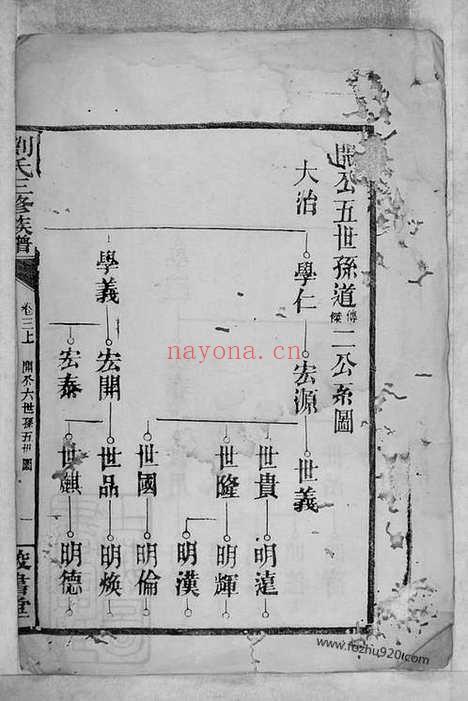 開公五世孫道傳傑二公系圖
大治
學仁 宏源 世義
世貴 明達
世隆 明輝
明漢
世國 明倫
學義 宏開 世品 明煥
宏泰 世麒 明德
劉氏三修族譜
卷三上
開公六世孫五世圖
一
書堂
nayona.cn
www.fozhu920.com